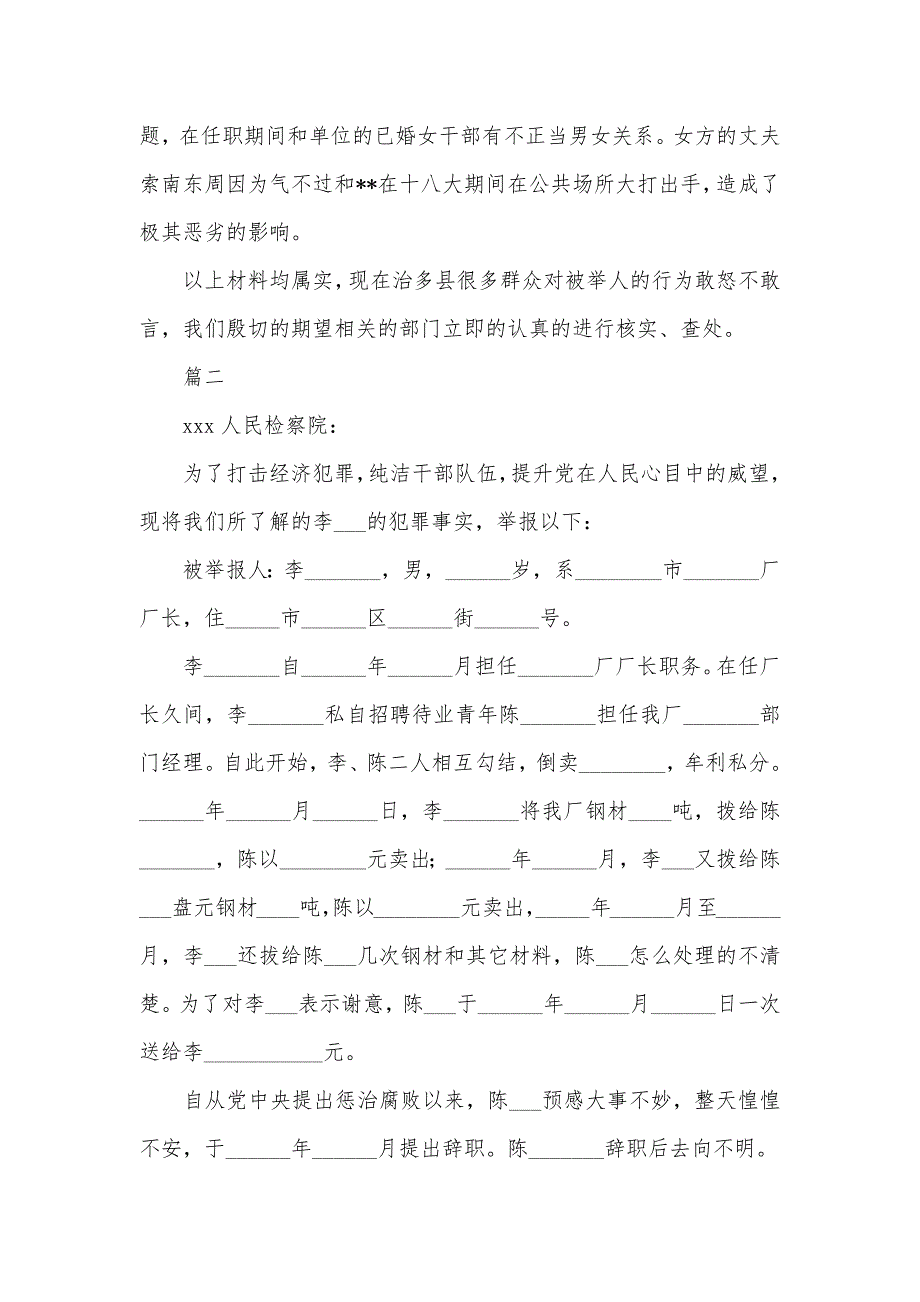 题，在任职期间和单位的已婚女干部有不正当男女关系。女方的丈夫
索南东周因为气不过和**在十八大期间在公共场所大打出手，造成了
极其恶劣的影响。
以上材料均属实，现在治多县很多群众对被举人的行为敢怒不敢
言，我们殷切的期望相关的部门立即的认真的进行核实、查处。
篇二
xxx 人民检察院：
为了打击经济犯罪，纯洁干部队伍，提升党在人民心目中的威望，
现将我们所了解的李___的犯罪事实，举报以下：
被举报人：李_______，男，______岁，系________市_______厂
厂长，住_____市______区______街______号。
李_______自______年______月担任_______厂厂长职务。在任厂
长久间，李_______私自招聘待业青年陈_______担任我厂_______部
门经理。自此开始，李、陈二人相互勾结，倒卖________，牟利私分。
______年______月______日，李_______将我厂钢材____吨，拨给陈
_______，陈以________元卖出；______年______月，李___又拨给陈
___盘元钢材____吨，陈以________元卖出，_____年______月至______
月，李___还拨给陈___几次钢材和其它材料，陈___怎么处理的不清
楚。为了对李___表示谢意，陈___于______年______月______日一次
送给李___________元。
自从党中央提出惩治腐败以来，陈___预感大事不妙，整天惶惶
不安，于______年______月提出辞职。陈_______辞职后去向不明。